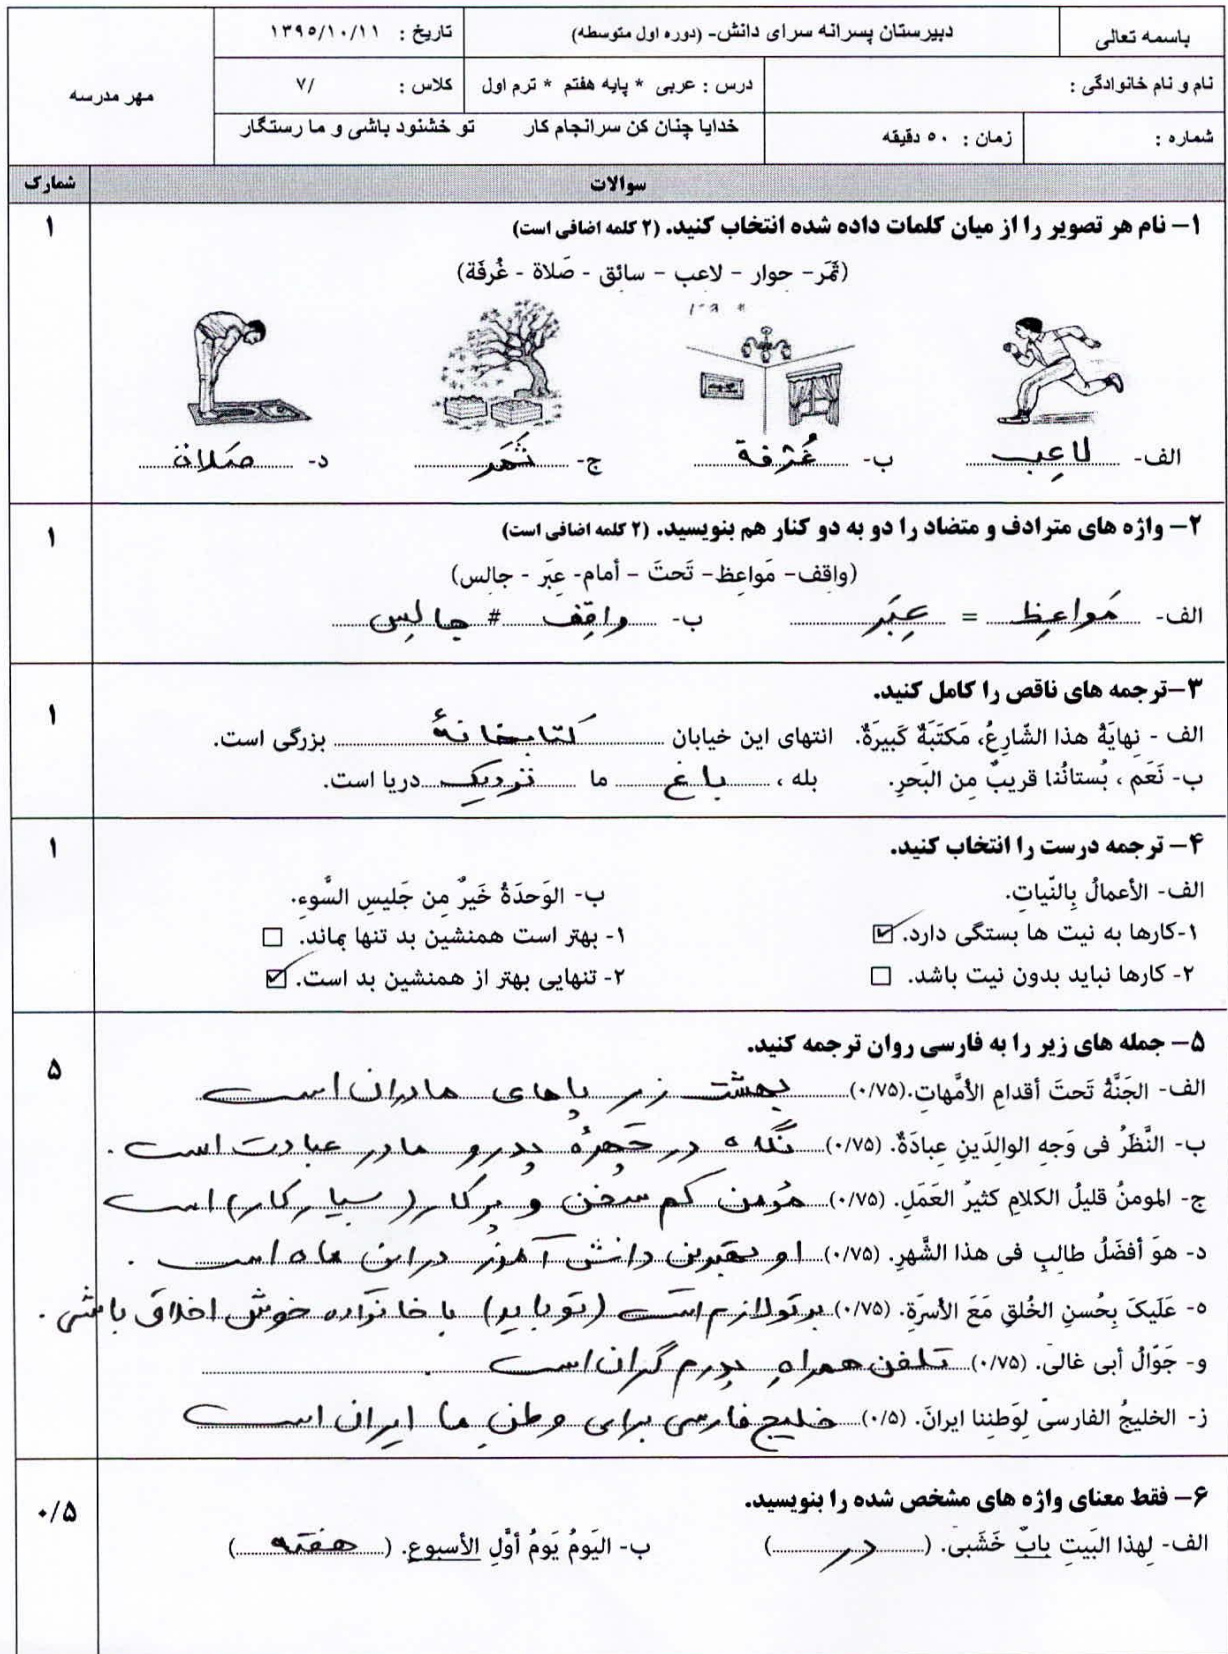 باسمه تعالی
دبیرستان پسرانه سرای دانش- (دوره اول متوسطه)
تاریخ : ۱۳۹۵/۱۰/۱۱
مهر مدرسه
نام و نام خانوادگی :
درس : عربی * پایه هفتم * ترم اول
کلاس : ۷/
شماره :
زمان : ۵۰ دقیقه
خدایا چنان کن سرانجام کار تو خشنود باشی و ما رستگار
سوالات
شمارک
۱– نام هر تصویر را از میان کلمات داده شده انتخاب کنید. (۲ کلمه اضافی است)
۱
(ثَمَر- حوار - لاعب - سائق - صَلاة - غُرفَة)
الف- لاعِب ب- غُرفة ج- ثَمَر د- صَلاة
۲– واژه های مترادف و متضاد را دو به دو کنار هم بنویسید. (۲ کلمه اضافی است)
۱
(واقِف- مَواعِظ- تَحتَ - أمام- عِبَر - جالس)
الف- مَواعِظ = عِبَر ب- واقِف # جالِس
۳–ترجمه های ناقص را کامل کنید.
۱
الف - نِهایَةُ هذا الشّارِعُ، مَکتَبَةٌ کَبیرَةٌ. انتهای این خیابان کتابخانهٔ بزرگی است.
ب- نَعَم ، بُستانُنا قریبٌ مِن البَحرِ. بله ، باغ ما نزدیک دریا است.
۴– ترجمه درست را انتخاب کنید.
۱
الف- الأعمالُ بِالنّیاتِ. ب- الوَحدَةُ خَیرٌ مِن جَلیسِ السُّوءِ.
۱-کارها به نیت ها بستگی دارد. ☑ ۱- بهتر است همنشین بد تنها بماند. □
۲- کارها نباید بدون نیت باشد. □ ۲- تنهایی بهتر از همنشین بد است. ☑
۵– جمله های زیر را به فارسی روان ترجمه کنید.
۵
الف- الجَنَّةُ تَحتَ أقدامِ الأمَّهاتِ.(۰/۷۵) بهشت زیر پاهای مادران است
ب- النَّظَرُ فی وَجهِ الوالِدَینِ عِبادَةٌ. (۰/۷۵) نگاه در چهرهٔ پدر و مادر عبادت است.
ج- المومنُ قلیلُ الکلامِ کثیرُ العَمَلِ. (۰/۷۵) مؤمن کم سخن و پرکار (بسیار کار) است
د- هوَ أفضَلُ طالِبٍ فی هذا الشَّهرِ. (۰/۷۵) او بهترین دانش آموز در این ماه است.
ه- عَلَیکَ بِحُسنِ الخُلقِ مَعَ الأسرَةِ. (۰/۷۵) بر تو لازم است (تو باید) با خانواده خوش اخلاق باشی.
و- جَوّالُ أبی غالی. (۰/۷۵) تلفن همراهِ پدرم گران است.
ز- الخلیجُ الفارسیّ لِوَطنِنا ایرانَ. (۰/۵) خلیج فارسی برای وطنِ ما ایران است
۶– فقط معنای واژه های مشخص شده را بنویسید.
۰/۵
الف- لِهذا البَیتِ بابٌ خَشَبی. ( در ) ب- الیَومُ یَومُ أوَّلِ الأسبوعِ. ( هفته )